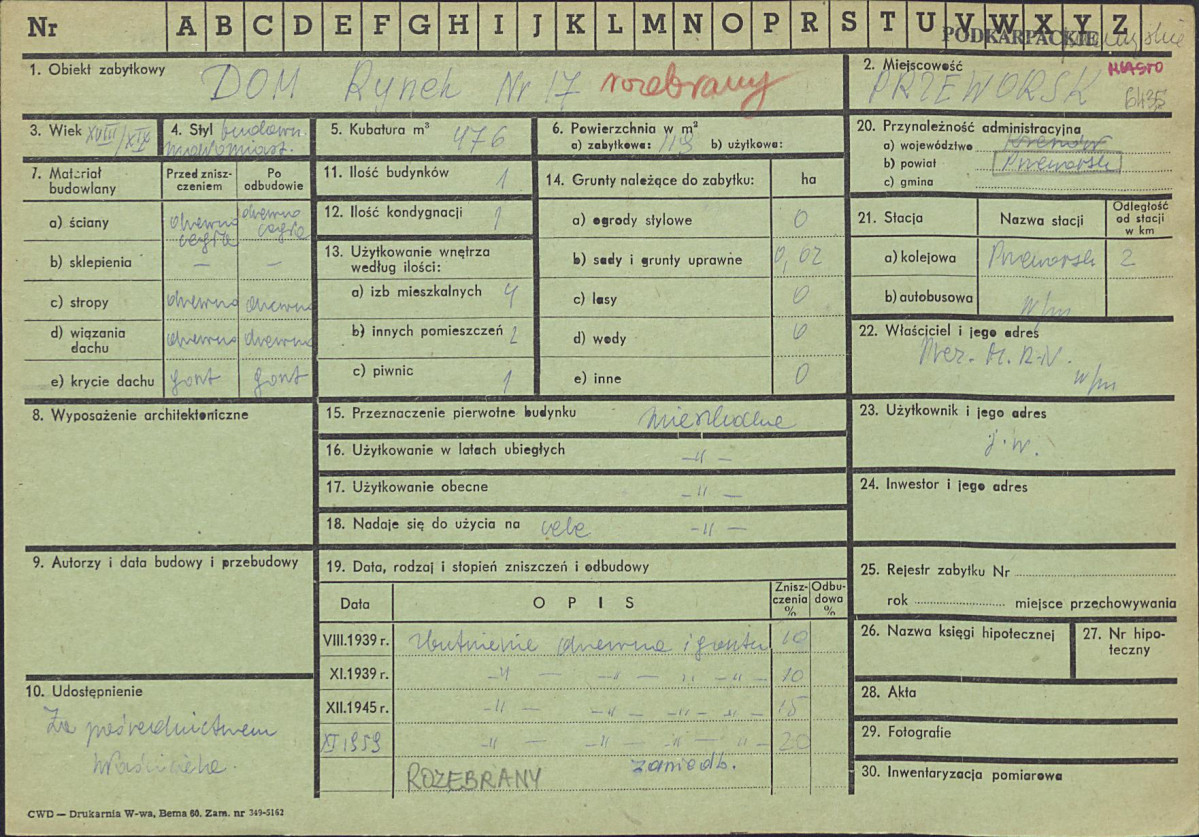 Nr A B C D E F G H I J K L M N O P R S T U V W X Y Z
PODKARPACKIE
1. Obiekt zabytkowy DOM Rynek Nr 17 rozebrany
2. Miejscowość MIASTO
PRZEWORSK 6435
3. Wiek XVIII/XIX
4. Styl budown. małomiast.
5. Kubatura m³ 476
6. Powierzchnia w m²
a) zabytkowa: 119 b) użytkowa:
20. Przynależność administracyjna
a) województwo
b) powiat Przeworsk
c) gmina
7. Materiał budowlany
Przed zniszczeniem
Po odbudowie
a) ściany drewno cegła drewno cegła
b) sklepienia — —
c) stropy drewno drewno
d) wiązania dachu drewno drewno
e) krycie dachu gont gont
11. Ilość budynków 1
12. Ilość kondygnacji 1
13. Użytkowanie wnętrza
według ilości:
a) izb mieszkalnych 4
b) innych pomieszczeń 2
c) piwnic 1
14. Grunty należące do zabytku: ha
a) ogrody stylowe 0
b) sady i grunty uprawne 0,02
c) lasy 0
d) wody 0
e) inne 0
21. Stacja
Nazwa stacji
Odległość
od stacji
w km
a) kolejowa Przeworsk 2
b) autobusowa w/m
22. Właściciel i jego adres
Prez. M.R.N.
w/m
8. Wyposażenie architektoniczne
15. Przeznaczenie pierwotne budynku mieszkalne
16. Użytkowanie w latach ubiegłych —„—
17. Użytkowanie obecne —„—
18. Nadaje się do użycia na cele —„—
23. Użytkownik i jego adres
j.w.
24. Inwestor i jego adres
9. Autorzy i data budowy i przebudowy
19. Data, rodzaj i stopień zniszczeń i odbudowy
Data
OPIS
Znisz-
czenia
%
Odbu-
dowa
%
VIII.1939 r. Butnienie drewna i gontu 10
XI.1939 r. —„— —„— „— —„— 10
XII.1945 r. —„— —„— —„— —„— 15
XI 1959 —„— —„— —„— „— 20
ROZEBRANY zaniedb.
10. Udostępnienie
Za pośrednictwem
właściciela.
25. Rejestr zabytku Nr
rok miejsce przechowywania
26. Nazwa księgi hipotecznej
27. Nr hipo-
teczny
28. Akta
29. Fotografie
30. Inwentaryzacja pomiarowa
CWD — Drukarnia W-wa, Bema 60. Zam. nr 349-5162